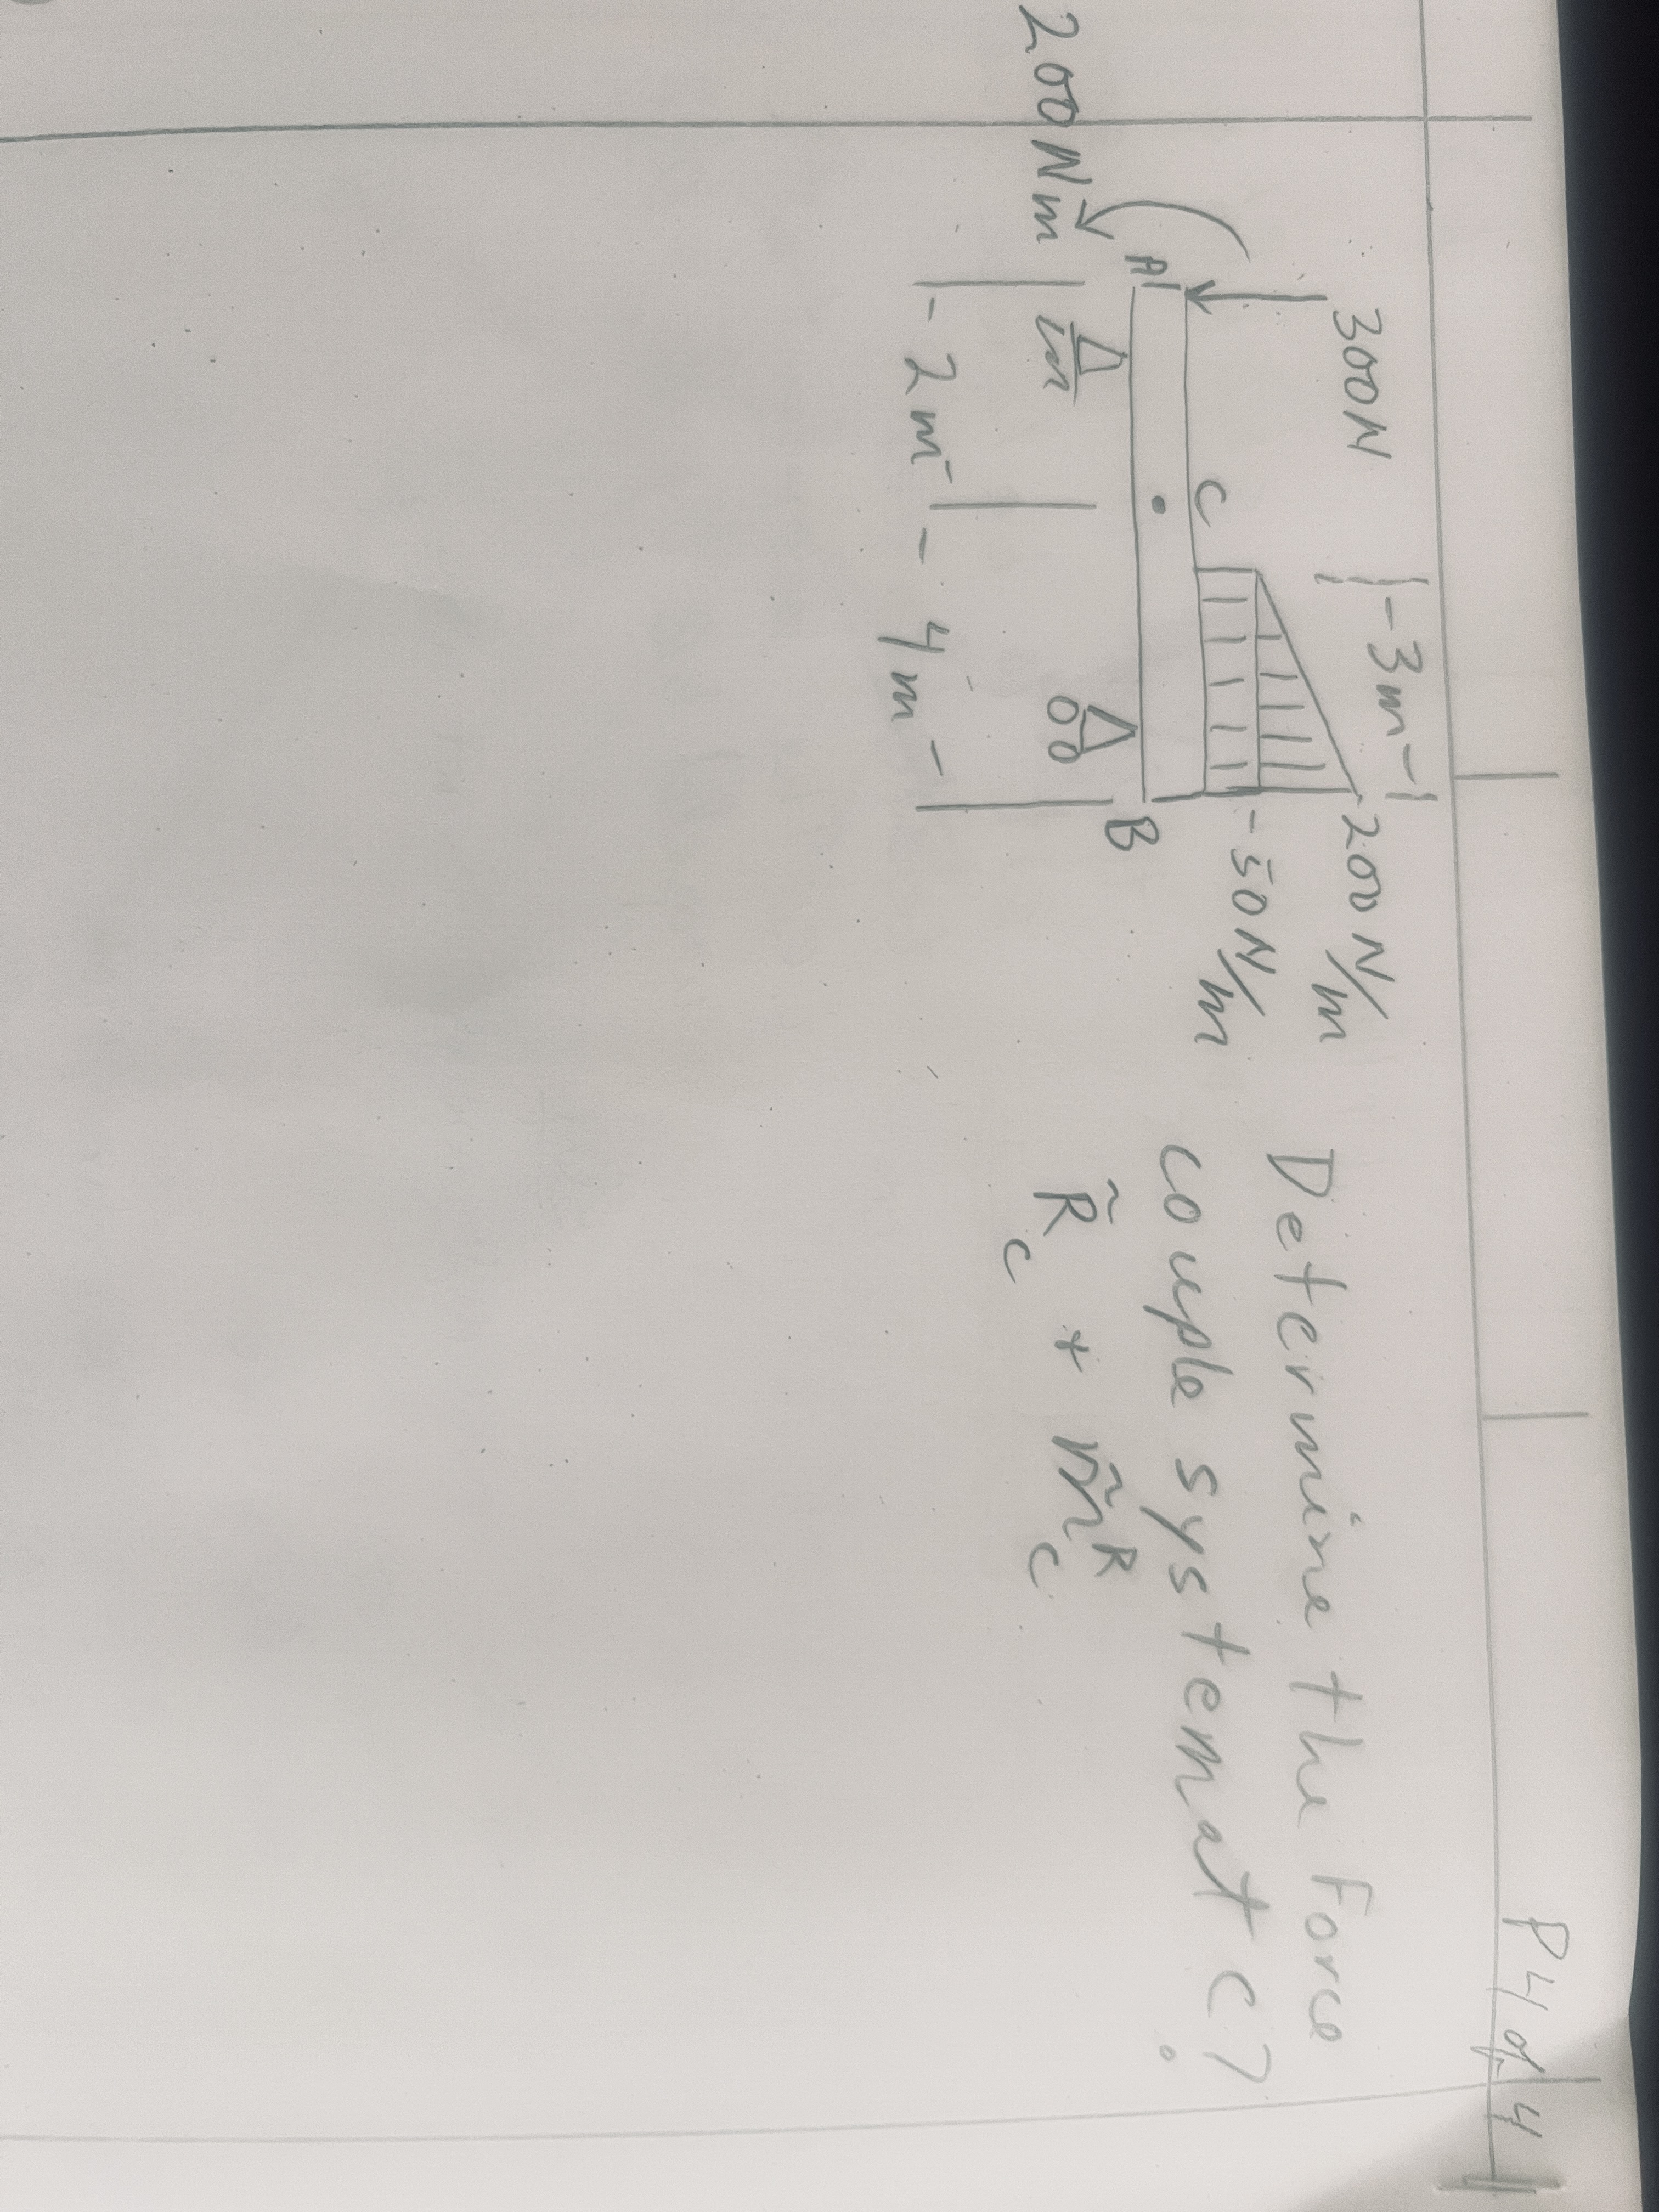 P4 of 4
|-3m-|
300N
200 N/m
Determine the Force
C
- 50 N/m
couple system at C?
A
B
200 Nm
R̃c + m̃ᴿc
- 2m - - 4m -